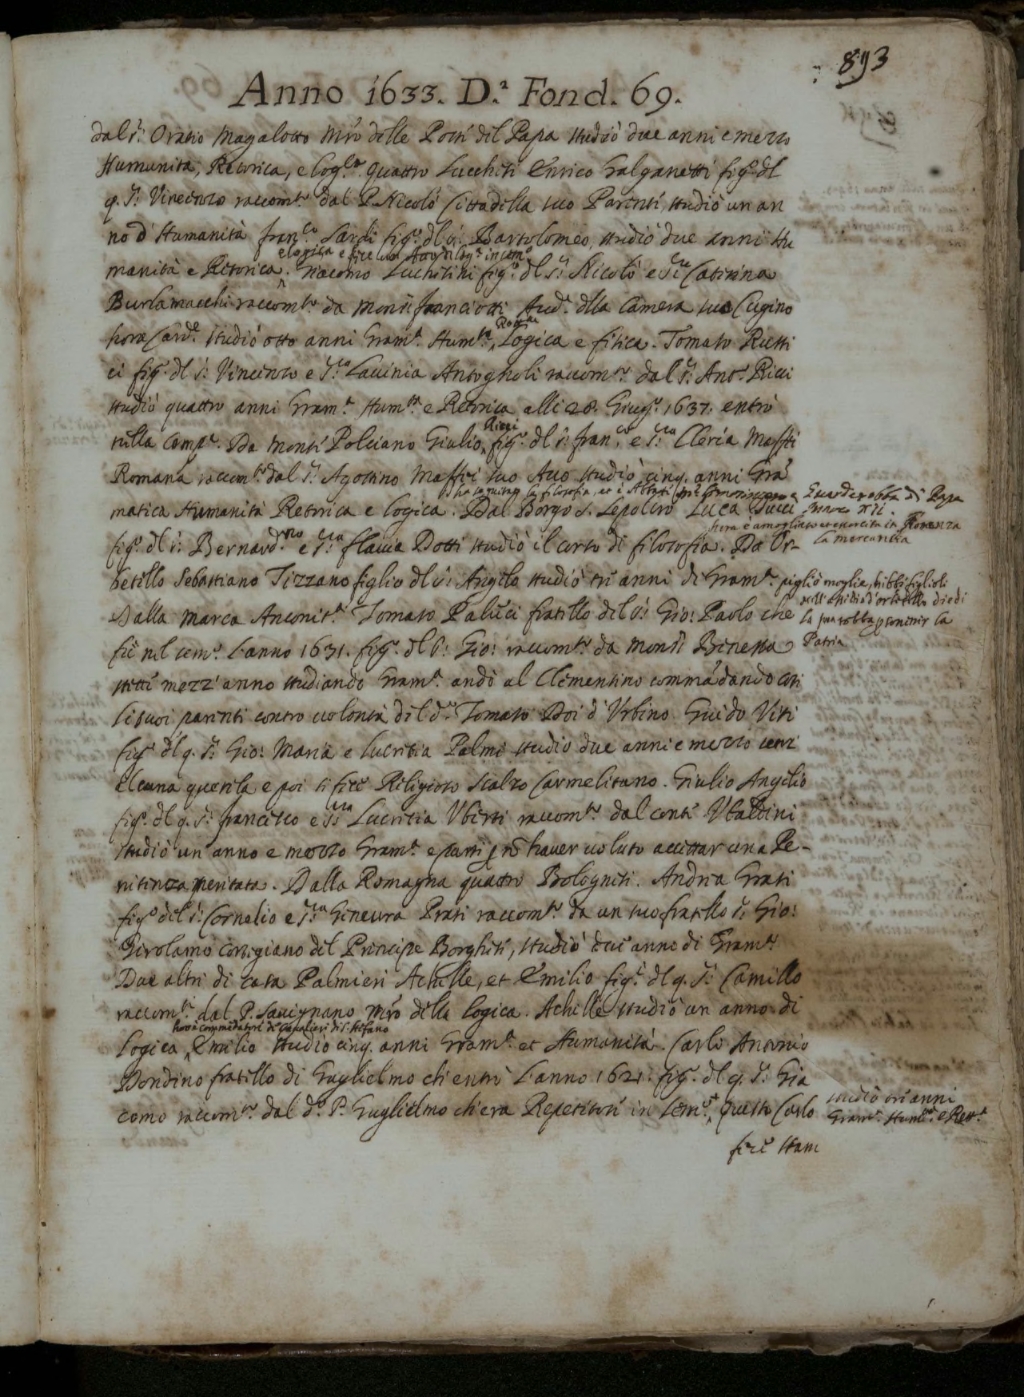 893
Anno 1633. D.ª Fond. 69.
dal s.r Oratio Magalotto m͂ro delle Porti del Papa studiò due anni e mezzo
Humanità, Retorica, e log.ca quattro Lucchesi Enrico Galganetti fig.o dl
q. s.r Vincenzo raccom.to dal P. Nicolò Cittadella suo Parenti studiò un an
no d'Humanità fran.co Sardi fig.o dl s.r Bartolomeo studiò due anni Hu
manità e Retorica. Giacomo Luchesini fig.o dl s.r Nicolò e s.ra Caterina
e logica e fece
Burlamacchi raccom.to da Mons.r franciotti Aud.r dlla Camera suo Cugino
hora Card.e studiò otto anni Gram.ca Hum.tà, Logica e fisica. Tomaso Ricci
Ret.ca
ci fig.o dl s.r Vincenzo e s.ra Lavinia Antognoli raccom.to dal s.r Ant.o Ricci
studiò quattro anni Gram.ca Hum.tà e Retorica alli 28 Giug.o 1637. entrò
nella Comp.a. Da Monti Polciano Giulio, fig.o dl s.r fran.co e s.ra Cleria Maffei
Ricci
Romana raccom.to dal s.r Agostino Maffei suo Avo studiò cinq. anni Gra͂
matica Humanità Retorica e logica. Dal Borgo S. Sepolcro Luca Ducci
fig.o dl s.r Bernard.no e s.ra flavia Dotti studiò il corso di filosofia. Da Or-
betello Sebastiano Tizzano figlio dl s.r Angelo studiò tri anni di Gram.ca
Dalla Marca Anconit.a Tomaso Palucci fratello del s.r Gio: Paolo che
fù nel sem.o l'anno 1631. fig.o dl s.r Gio: raccom.to da Mons.r Benessa
stetti mezz'anno studiando Gram.ca andò al Clementino comma͂dando cosi
li suoi parenti contro volontà del d.o Tomaso Doi d'Urbino Guido Viti
fig.o dl q. s.r Gio: Maria e Lucretia Palma studiò due anni e mezzo senz'
alcuna querela e poi si fece Religioso scalzo Carmelitano. Giulio Angelio
fig.o dl q. s.r francesco e s.ra Lucretia Uberti raccom.to dal conti Ubaldini
studiò un anno e mezzo Gram.ca e parti p no͂ haver voluto accettar una Pe-
nitinza meritata. Dalla Romagna quattro Bolognesi. Andrea Grati
fig.o del s.r Cornelio e s.ra Gineura Prati raccom.to da un suo fratello s.r Gio:
Girolamo cortegiano del Principe Borghesi, studiò due anno di Gram.ca
Due altri di casa Palmieri Achille, et Emilio fig.i dl q. s.r Camillo
raccom.ti dal P. Savignano m͂ro della logica. Achille studiò un anno di
Logica, Emilio studiò cinq. anni Gram.ca et Humanità. Carlo Antonio
Dondino fratello di Guglielmo ch'entrò l'anno 1621. fig.o dl q. s.r Gia
como raccom.to dal d.o P. Guglielmo ch'era Repetitore in sem.o, questo Carlo
studiò tri anni
Gram.ca Hum.tà e Ret.ca
fece Hum
Guardarobba di Papa
hora è
in Fiorenza
la mercantia
pigliò moglie, hebbe figlioli
d'orbetello diedi
la sua robba
la
Patria